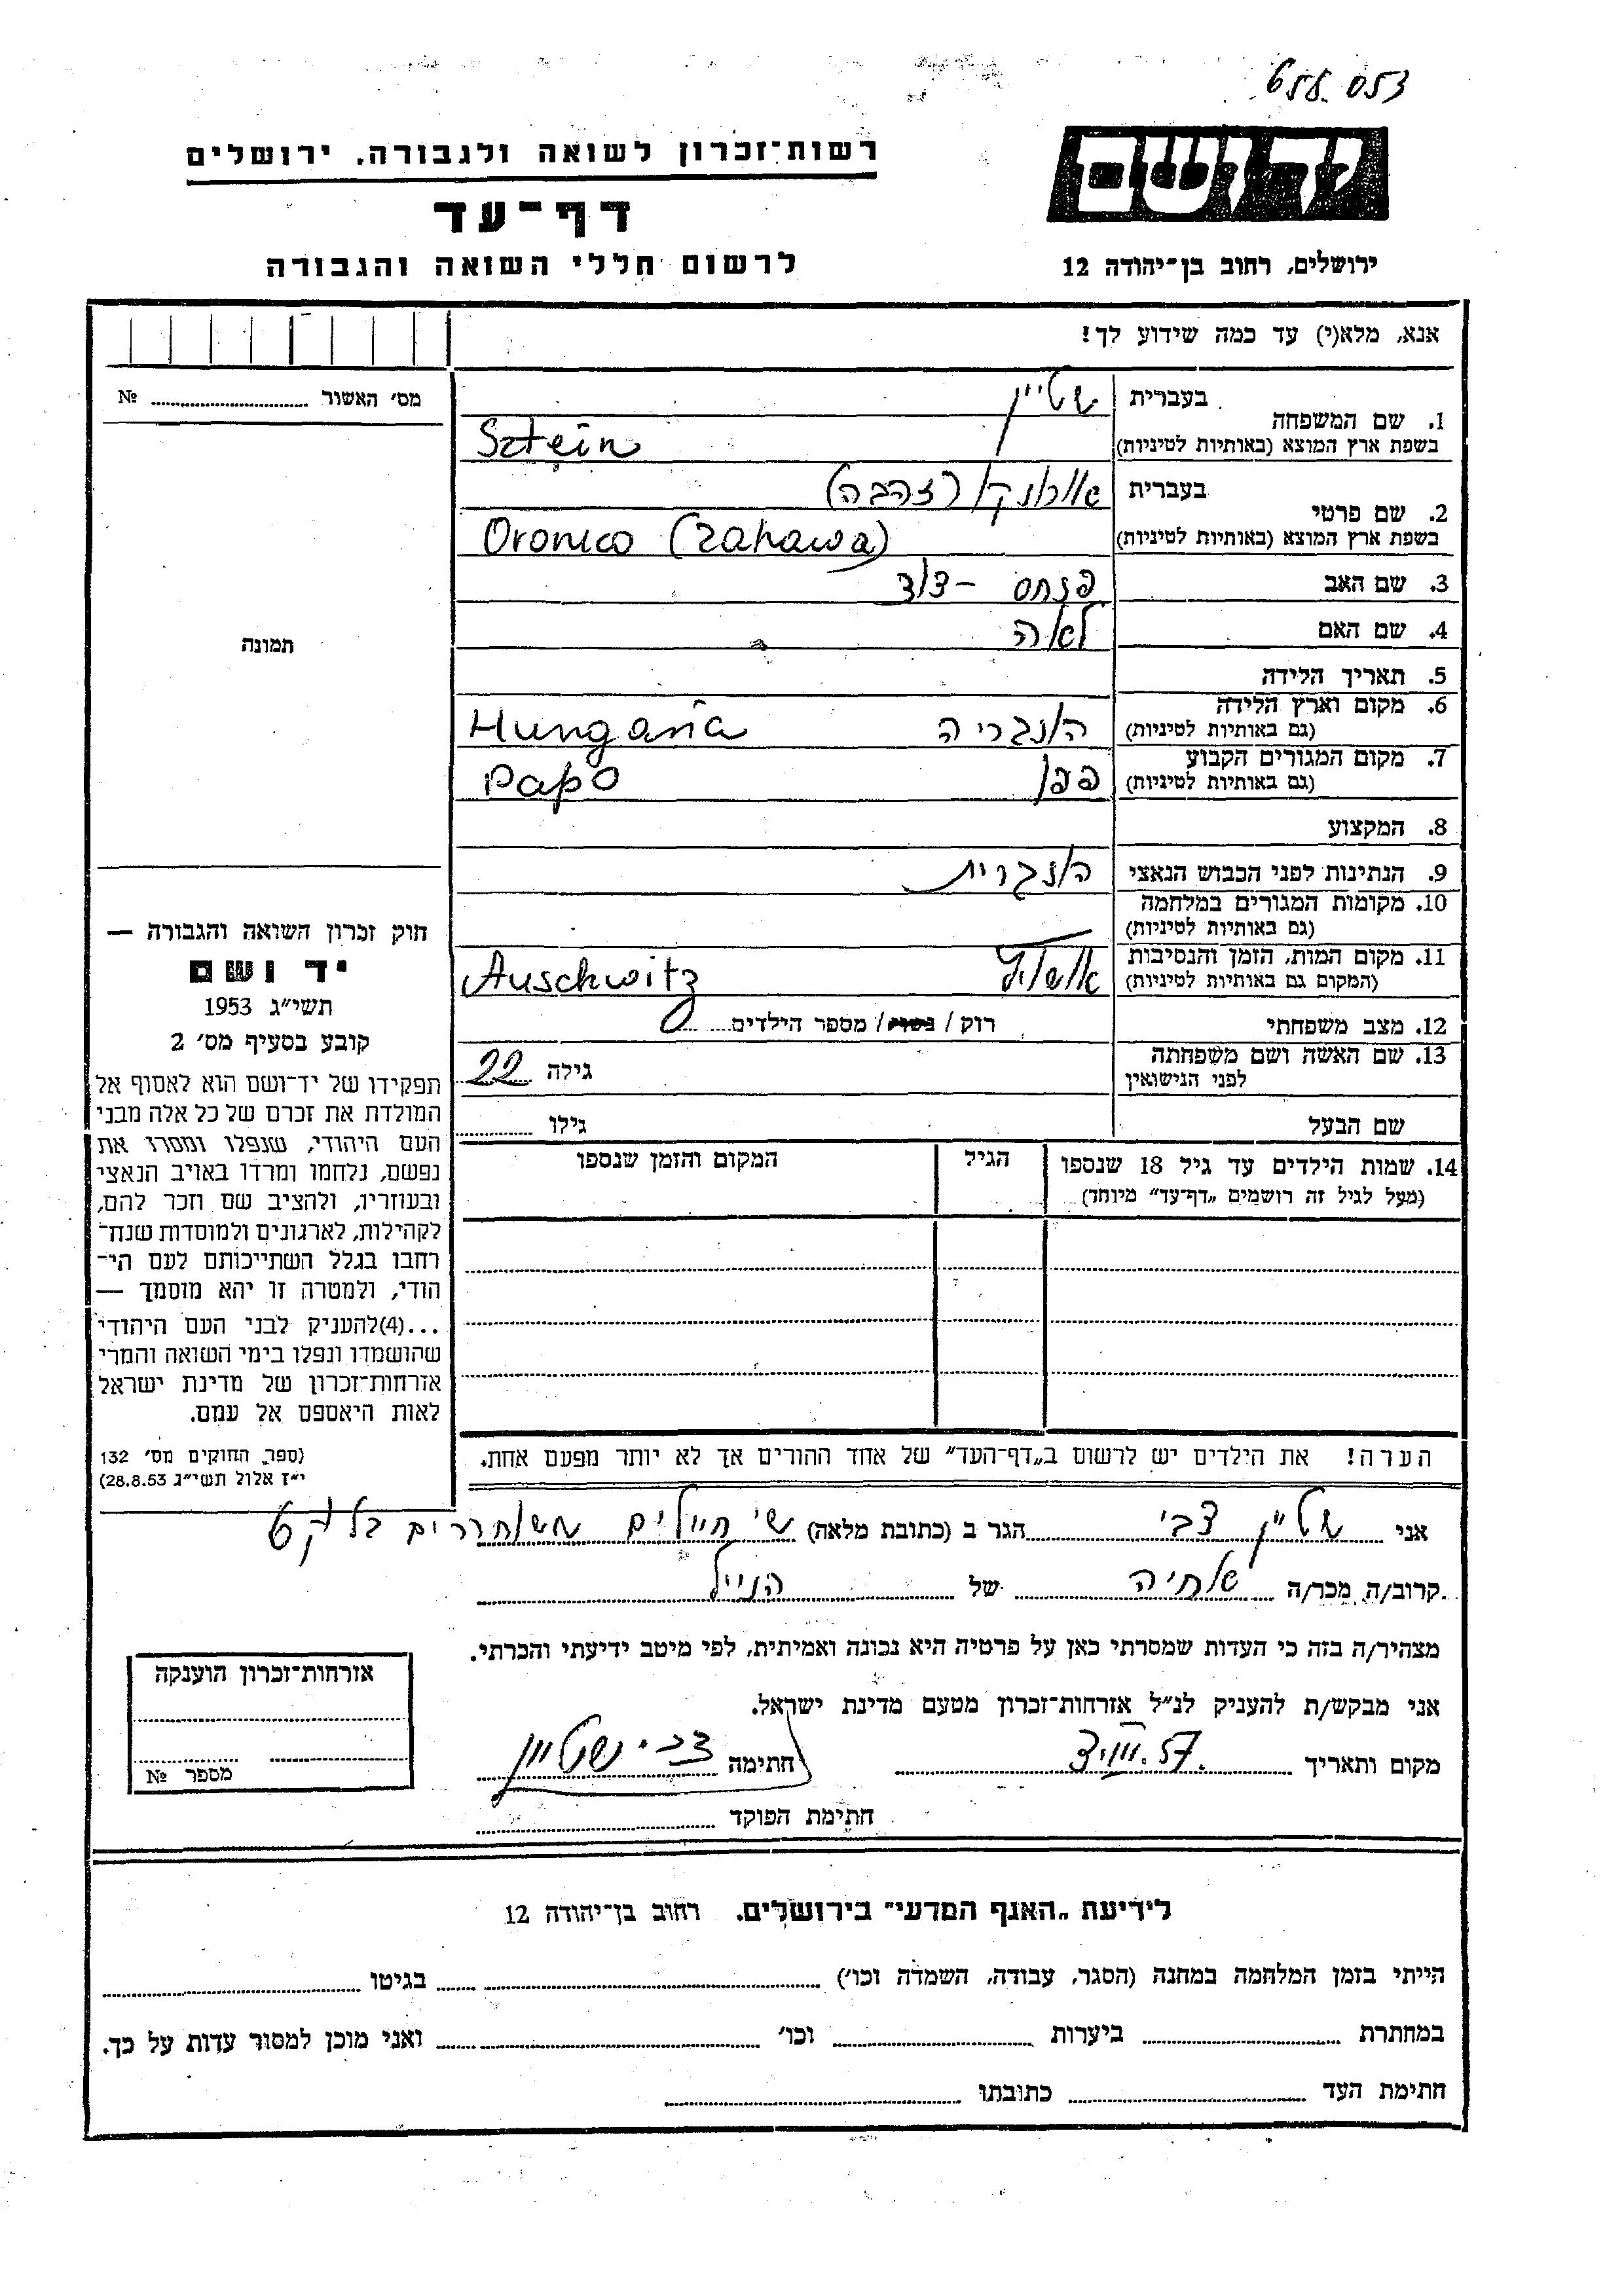 658.053
יד ושם
רשות־זכרון לשואה ולגבורה, ירושלים
דף־עד
לרשום חללי השואה והגבורה
ירושלים, רחוב בן־יהודה 12
אנא, מלא(י) עד כמה שידוע לך!
מס' האשור № 
1. שם המשפחה
בעברית שטיין
בשפת ארץ המוצא (באותיות לטיניות) Sztein
2. שם פרטי
בעברית (זהבה)
בשפת ארץ המוצא (באותיות לטיניות) Oronico (Zahawa)
3. שם האב פנחס - דוד
4. שם האם לאה
5. תאריך הלידה
6. מקום וארץ הלידה
(גם באותיות לטיניות) הונגריה Hungaria
7. מקום המגורים הקבוע
(גם באותיות לטיניות) פפו Papo
8. המקצוע
9. הנתינות לפני הכבוש הנאצי הונגרית
10. מקומות המגורים במלחמה
(גם באותיות לטיניות)
11. מקום המות, הזמן והנסיבות
(המקום גם באותיות לטיניות) Auschwitz
12. מצב משפחתי רוק / נשוי / מספר הילדים 0
13. שם האשה ושם משפחתה
לפני הנישואין גילה 22
שם הבעל גילו
14. שמות הילדים עד גיל 18 שנספו
(מעל לגיל זה רושמים „דף־עד" מיוחד)
הגיל
המקום והזמן שנספו
תמונה
חוק זכרון השואה והגבורה —
יד ושם
תשי"ג 1953
קובע בסעיף מס' 2
תפקידו של יד־ושם הוא לאסוף אל
המולדת את זכרם של כל אלה מבני
העם היהודי, שנפלו ומסרו את
נפשם, נלחמו ומרדו באויב הנאצי
ובעוזריו, ולהציב שם וזכר להם,
לקהילות, לארגונים ולמוסדות שנח־
רחבו בגלל השתייכותם לעם הי־
הודי, ולמטרה זו יהא מוסמך —
...(4)להעניק לבני העם היהודי
שהושמדו ונפלו בימי השואה והמרי
אזרחות־זכרון של מדינת ישראל
לאות היאספם אל עמם.
(ספר החוקים מס' 132
י"ז אלול תשי"ג 28.8.53)
הערה! את הילדים יש לרשום ב„דף־העד" של אחד ההורים אך לא יותר מפעם אחת.
אני שטיין צבי הגר ב (כתובת מלאה) ש' חיילים משוחררים
קרוב/ה מכר/ה של הנ"ל
מצהיר/ה בזה כי העדות שמסרתי כאן על פרטיה היא נכונה ואמיתית, לפי מיטב ידיעתי והכרתי.
אני מבקש/ת להעניק לנ"ל אזרחות־זכרון מטעם מדינת ישראל.
מקום ותאריך חתימה צבי שטיין
חתימת הפוקד
אזרחות־זכרון הוענקה
מספר №
לידיעת „האגף המדעי" בירושלים, רחוב בן־יהודה 12
הייתי בזמן המלחמה במחנה (הסגר, עבודה, השמדה וכו') בגיטו
במחתרת ביערות וכו' ואני מוכן למסור עדות על כך.
חתימת העד כתובתו